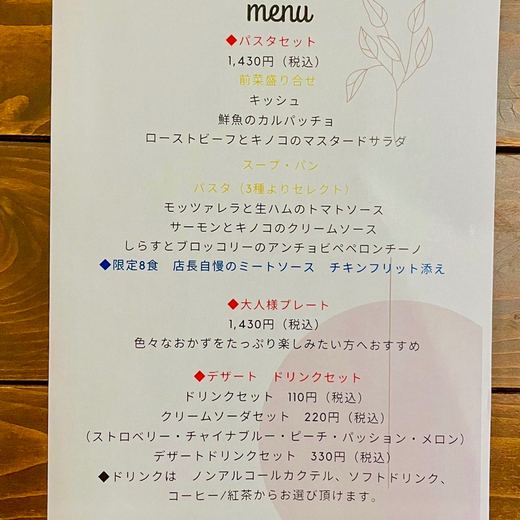 menu
◆パスタセット
1,430円（税込）
前菜盛り合せ
キッシュ
鮮魚のカルパッチョ
ローストビーフとキノコのマスタードサラダ
スープ・パン
パスタ（3種よりセレクト）
モッツァレラと生ハムのトマトソース
サーモンとキノコのクリームソース
しらすとブロッコリーのアンチョビペペロンチーノ
◆限定8食　店長自慢のミートソース　チキンフリット添え
◆大人様プレート
1,430円（税込）
色々なおかずをたっぷり楽しみたい方へおすすめ
◆デザート　ドリンクセット
ドリンクセット　110円（税込）
クリームソーダセット　220円（税込）
（ストロベリー・チャイナブルー・ピーチ・パッション・メロン）
デザートドリンクセット　330円（税込）
◆ドリンクは　ノンアルコールカクテル、ソフトドリンク、
コーヒー/紅茶からお選び頂けます。